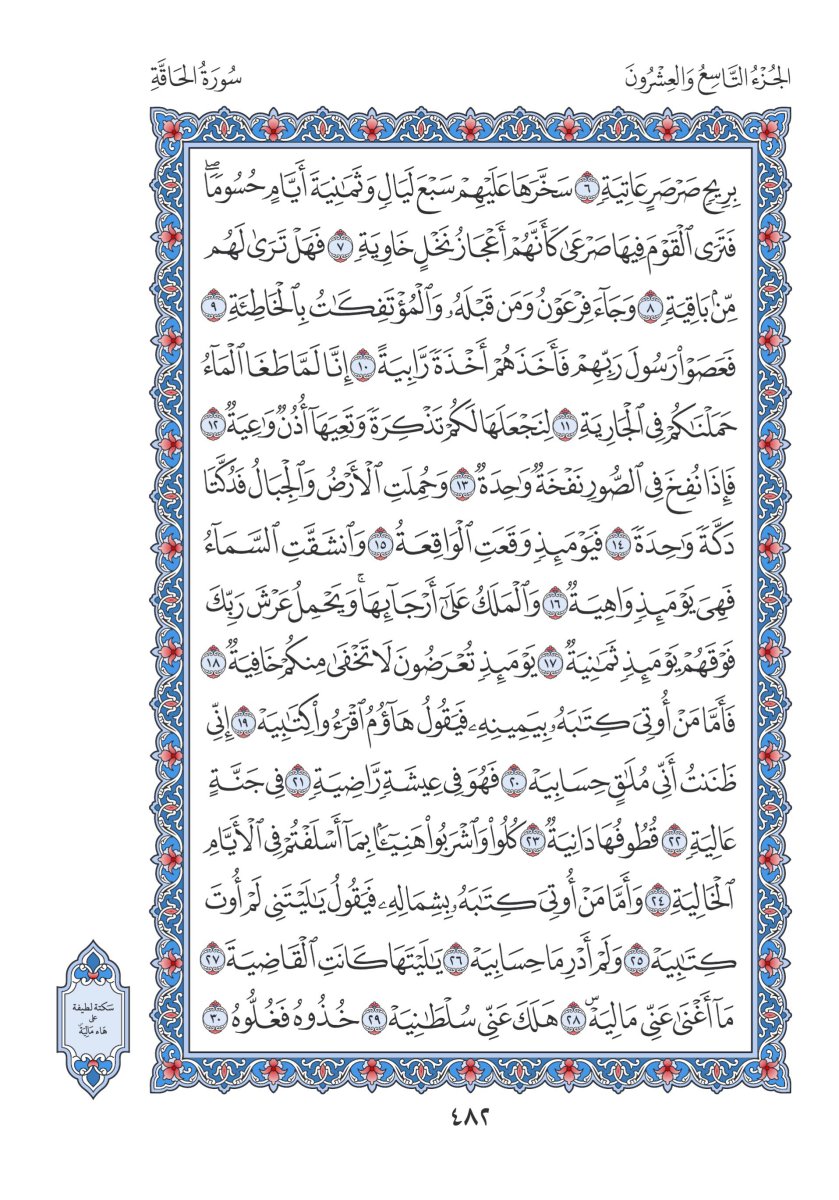 الجُزْءُ التَّاسِعُ وَالعِشْرُونَ
سُورَةُ الحَاقَّةِ
بِرِيحٍ صَرْصَرٍ عَاتِيَةٍ ٦ سَخَّرَهَا عَلَيْهِمْ سَبْعَ لَيَالٍ وَثَمَٰنِيَةَ أَيَّامٍ حُسُومًاۖ
فَتَرَى ٱلْقَوْمَ فِيهَا صَرْعَىٰ كَأَنَّهُمْ أَعْجَازُ نَخْلٍ خَاوِيَةٍ ٧ فَهَلْ تَرَىٰ لَهُم
مِّنۢ بَاقِيَةٍ ٨ وَجَآءَ فِرْعَوْنُ وَمَن قَبْلَهُۥ وَٱلْمُؤْتَفِكَٰتُ بِٱلْخَاطِئَةِ ٩
فَعَصَوْا۟ رَسُولَ رَبِّهِمْ فَأَخَذَهُمْ أَخْذَةً رَّابِيَةً ١٠ إِنَّا لَمَّا طَغَا ٱلْمَآءُ
حَمَلْنَٰكُمْ فِى ٱلْجَارِيَةِ ١١ لِنَجْعَلَهَا لَكُمْ تَذْكِرَةً وَتَعِيَهَآ أُذُنٌ وَٰعِيَةٌ ١٢
فَإِذَا نُفِخَ فِى ٱلصُّورِ نَفْخَةٌ وَٰحِدَةٌ ١٣ وَحُمِلَتِ ٱلْأَرْضُ وَٱلْجِبَالُ فَدُكَّتَا
دَكَّةً وَٰحِدَةً ١٤ فَيَوْمَئِذٍ وَقَعَتِ ٱلْوَاقِعَةُ ١٥ وَٱنشَقَّتِ ٱلسَّمَآءُ
فَهِىَ يَوْمَئِذٍ وَاهِيَةٌ ١٦ وَٱلْمَلَكُ عَلَىٰٓ أَرْجَآئِهَاۚ وَيَحْمِلُ عَرْشَ رَبِّكَ
فَوْقَهُمْ يَوْمَئِذٍ ثَمَٰنِيَةٌ ١٧ يَوْمَئِذٍ تُعْرَضُونَ لَا تَخْفَىٰ مِنكُمْ خَافِيَةٌ ١٨
فَأَمَّا مَنْ أُوتِىَ كِتَٰبَهُۥ بِيَمِينِهِۦ فَيَقُولُ هَآؤُمُ ٱقْرَءُوا۟ كِتَٰبِيَهْ ١٩ إِنِّى
ظَنَنتُ أَنِّى مُلَٰقٍ حِسَابِيَهْ ٢٠ فَهُوَ فِى عِيشَةٍ رَّاضِيَةٍ ٢١ فِى جَنَّةٍ
عَالِيَةٍ ٢٢ قُطُوفُهَا دَانِيَةٌ ٢٣ كُلُوا۟ وَٱشْرَبُوا۟ هَنِيٓـًٔۢا بِمَآ أَسْلَفْتُمْ فِى ٱلْأَيَّامِ
ٱلْخَالِيَةِ ٢٤ وَأَمَّا مَنْ أُوتِىَ كِتَٰبَهُۥ بِشِمَالِهِۦ فَيَقُولُ يَٰلَيْتَنِى لَمْ أُوتَ
كِتَٰبِيَهْ ٢٥ وَلَمْ أَدْرِ مَا حِسَابِيَهْ ٢٦ يَٰلَيْتَهَا كَانَتِ ٱلْقَاضِيَةَ ٢٧
مَآ أَغْنَىٰ عَنِّى مَالِيَهْۜ ٢٨ هَلَكَ عَنِّى سُلْطَٰنِيَهْ ٢٩ خُذُوهُ فَغُلُّوهُ ٣٠
سَكتة لطيفة
على
هَاء مَالِيَهْ
٤٨٢